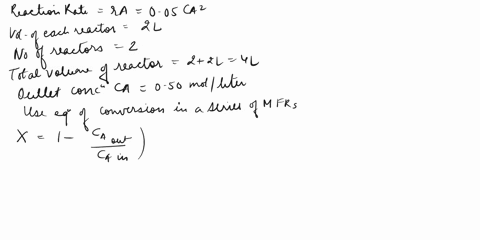 Reaction Rate = rA = 0.05 CA²
Vol. of each reactor = 2L
No of reactors = 2
Total volume of reactor = 2+2L = 4L
Outlet concⁿ CA = 0.50 mol/liter
Use eqⁿ of conversion in a series of MFRs
X = 1 - C_A out / C_A in )